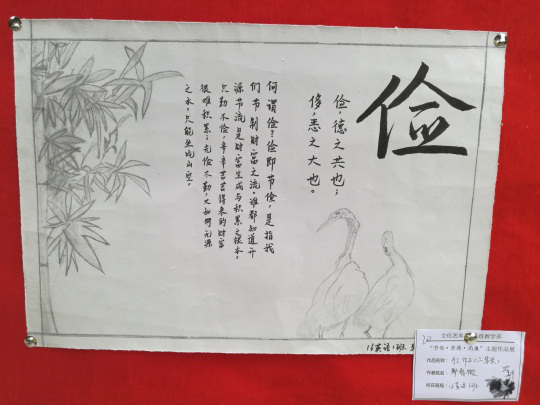 俭
俭,德之共也;
侈,恶之大也。
何谓俭?俭即节俭,是指我
们节制财富之流。谁都知道开
源节流是财富生成与积累之根本。
只勤不俭,辛辛苦苦得来的财富
很难积累;光俭不勤,又如同无源
之水,只能坐吃山空。
16英语1班
文化艺术 教学部
主题作品展
作品名称:
作者姓名:
所在班级: 16英语1班